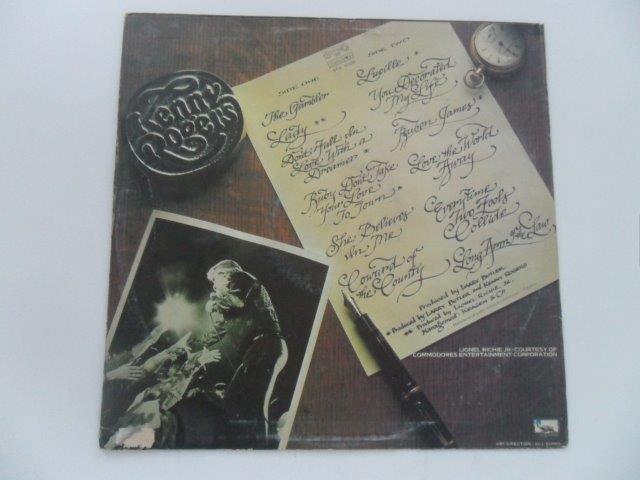 Kenny
Rogers
SIDE ONE
The Gambler
Lady **
Don't Fall In
Love With a
Dreamer *
Ruby Don't Take
Your Love
To Town *
She Believes
In Me
Coward of
the County
SIDE TWO
Lucille
You Decorated
My Life
Reuben James *
Love the World
Away
Every Time
Two Fools
Collide
Long Arm of the Law
Produced by LARRY BUTLER
* Produced by LARRY BUTLER and KENNY ROGERS
** Produced by LIONEL RICHIE, JR.
Management: KRAGEN & CO.
LIONEL RICHIE JR.-COURTESY OF
COMMODORES ENTERTAINMENT CORPORATION
ART DIRECTION: BILL BURKS